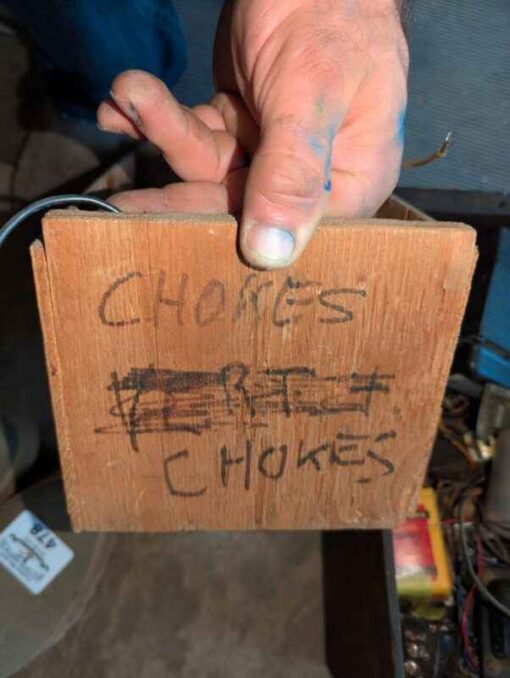 CHOKES
CHOKES
478